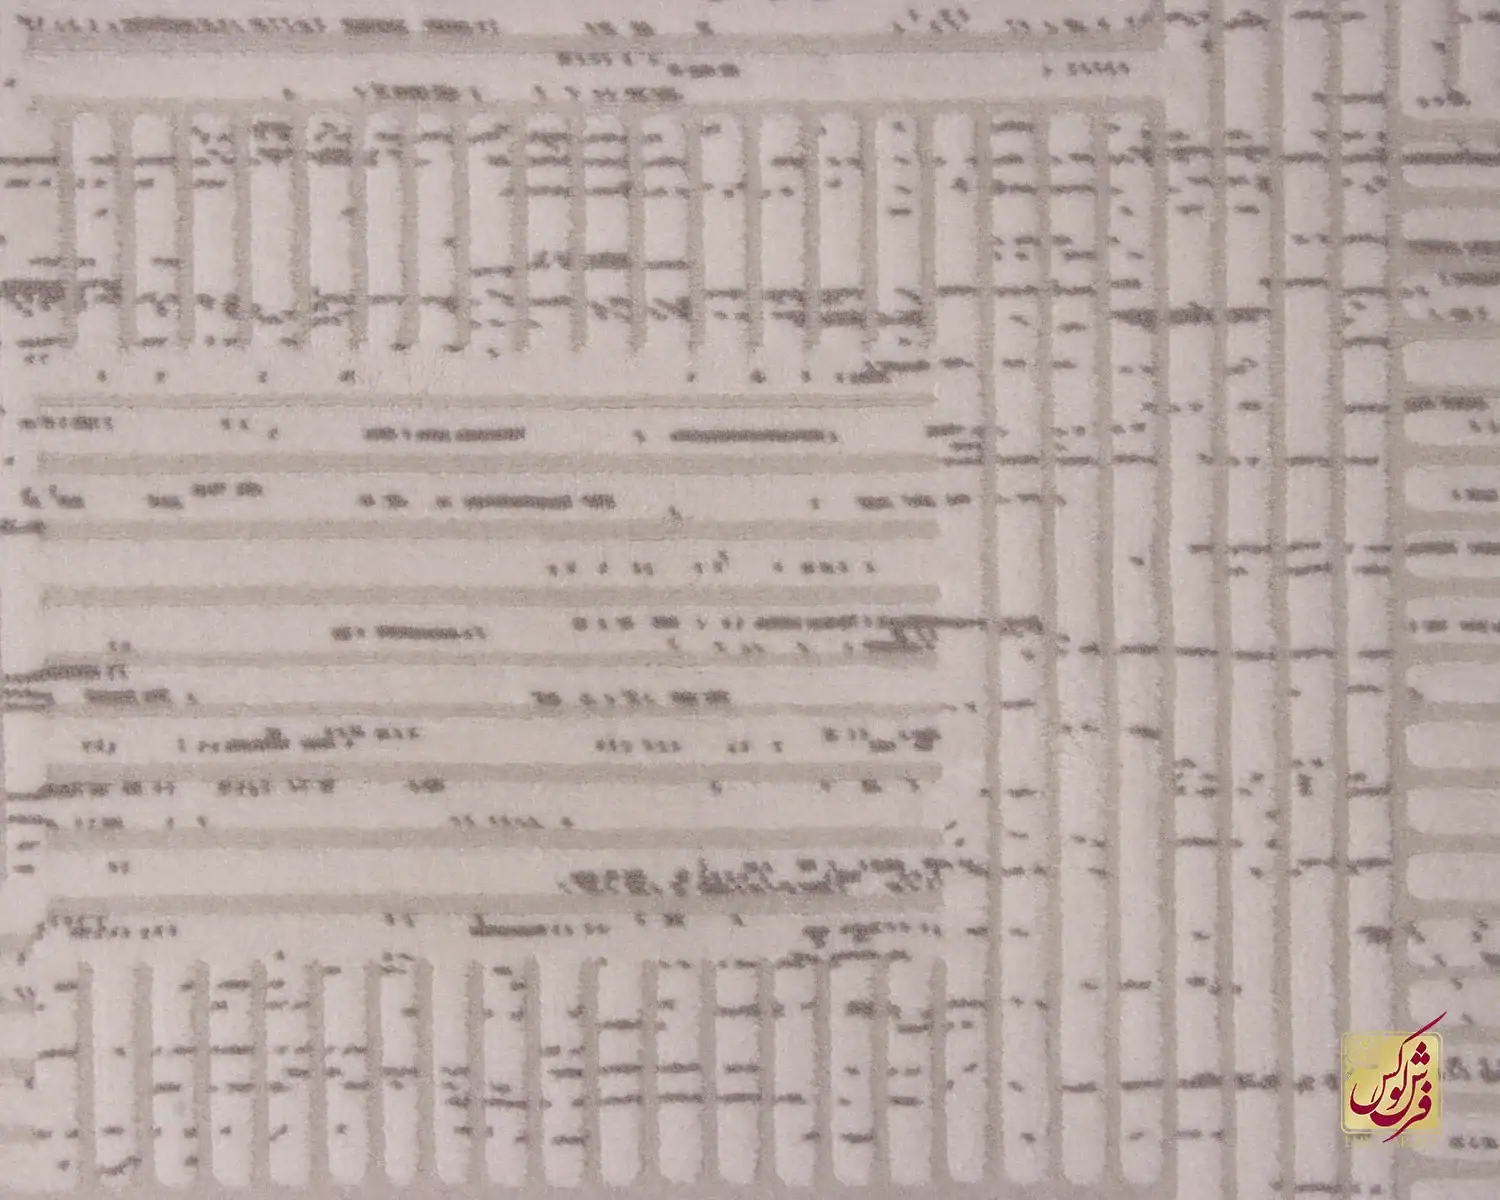 فرش لوکس